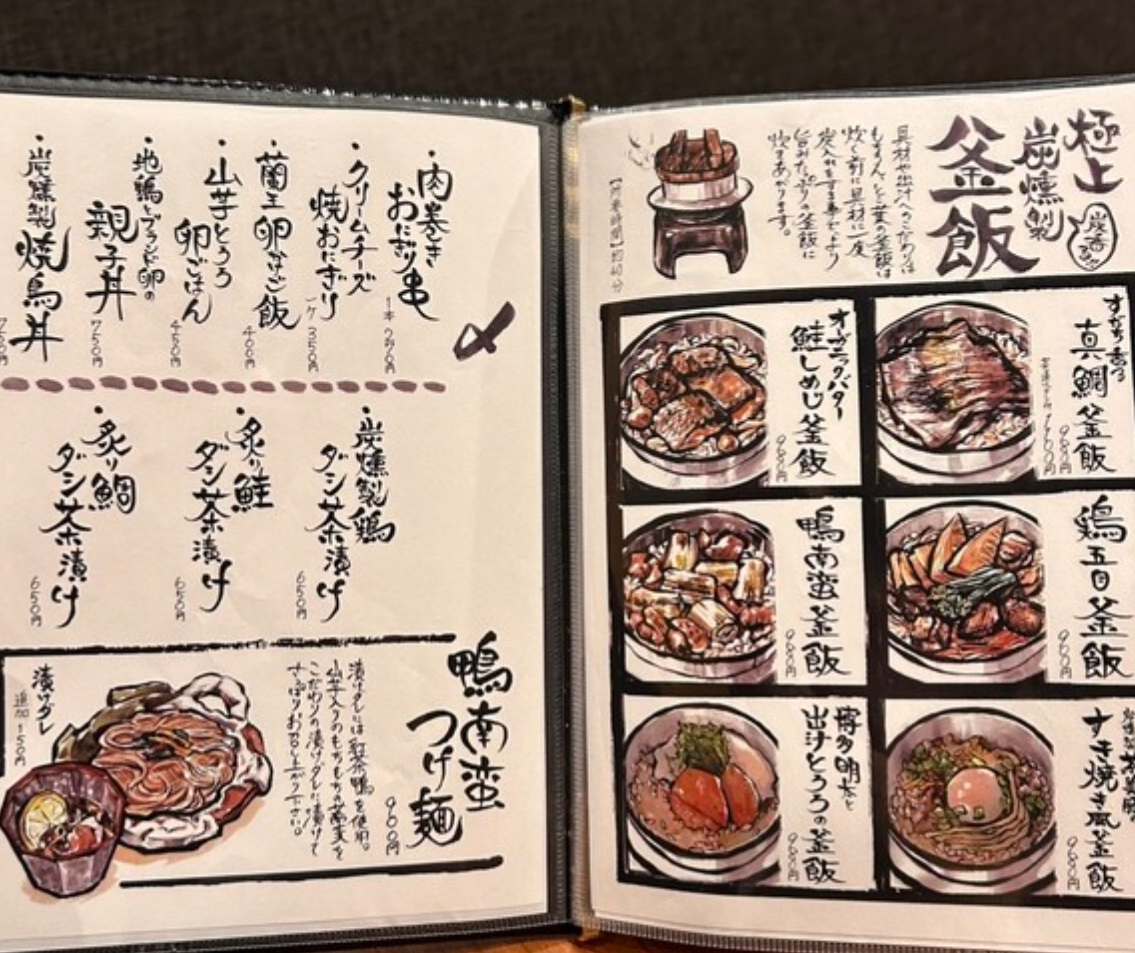 極上
炭燻製
釜飯
具材や出汁へのこだわりは
もちろん、
炊く前に具材に一度
炊きあがります。
すだち香る
真鯛釜飯
オーガニックバター
鮭しめじ釜飯
980円
鶏五目釜飯
980円
鴨南蛮釜飯
980円
すき焼き風釜飯
980円
博多明太と
出汁とろろの釜飯
980円
・肉巻き
おにぎり串
・クリームチーズ
焼おにぎり
一ケ 350円
・蘭王
卵かけご飯
400円
・山芋とろろ
卵ごはん
450円
・地鶏とブランド卵の
親子丼
750円
・炭燻製
焼鳥丼
〆
・炭燻製鶏
ダシ茶漬け
650円
・炙り鮭
ダシ茶漬け
650円
・炙り鯛
ダシ茶漬け
650円
鴨南蛮
つけ麺
900円
漬けダレには紅茶鴨を使用。
山芋入りのもちもち蕎麦を
こだわりの漬けダレに漬けて
さっぱりお召し上がり下さい。
漬けダレ
追加150円